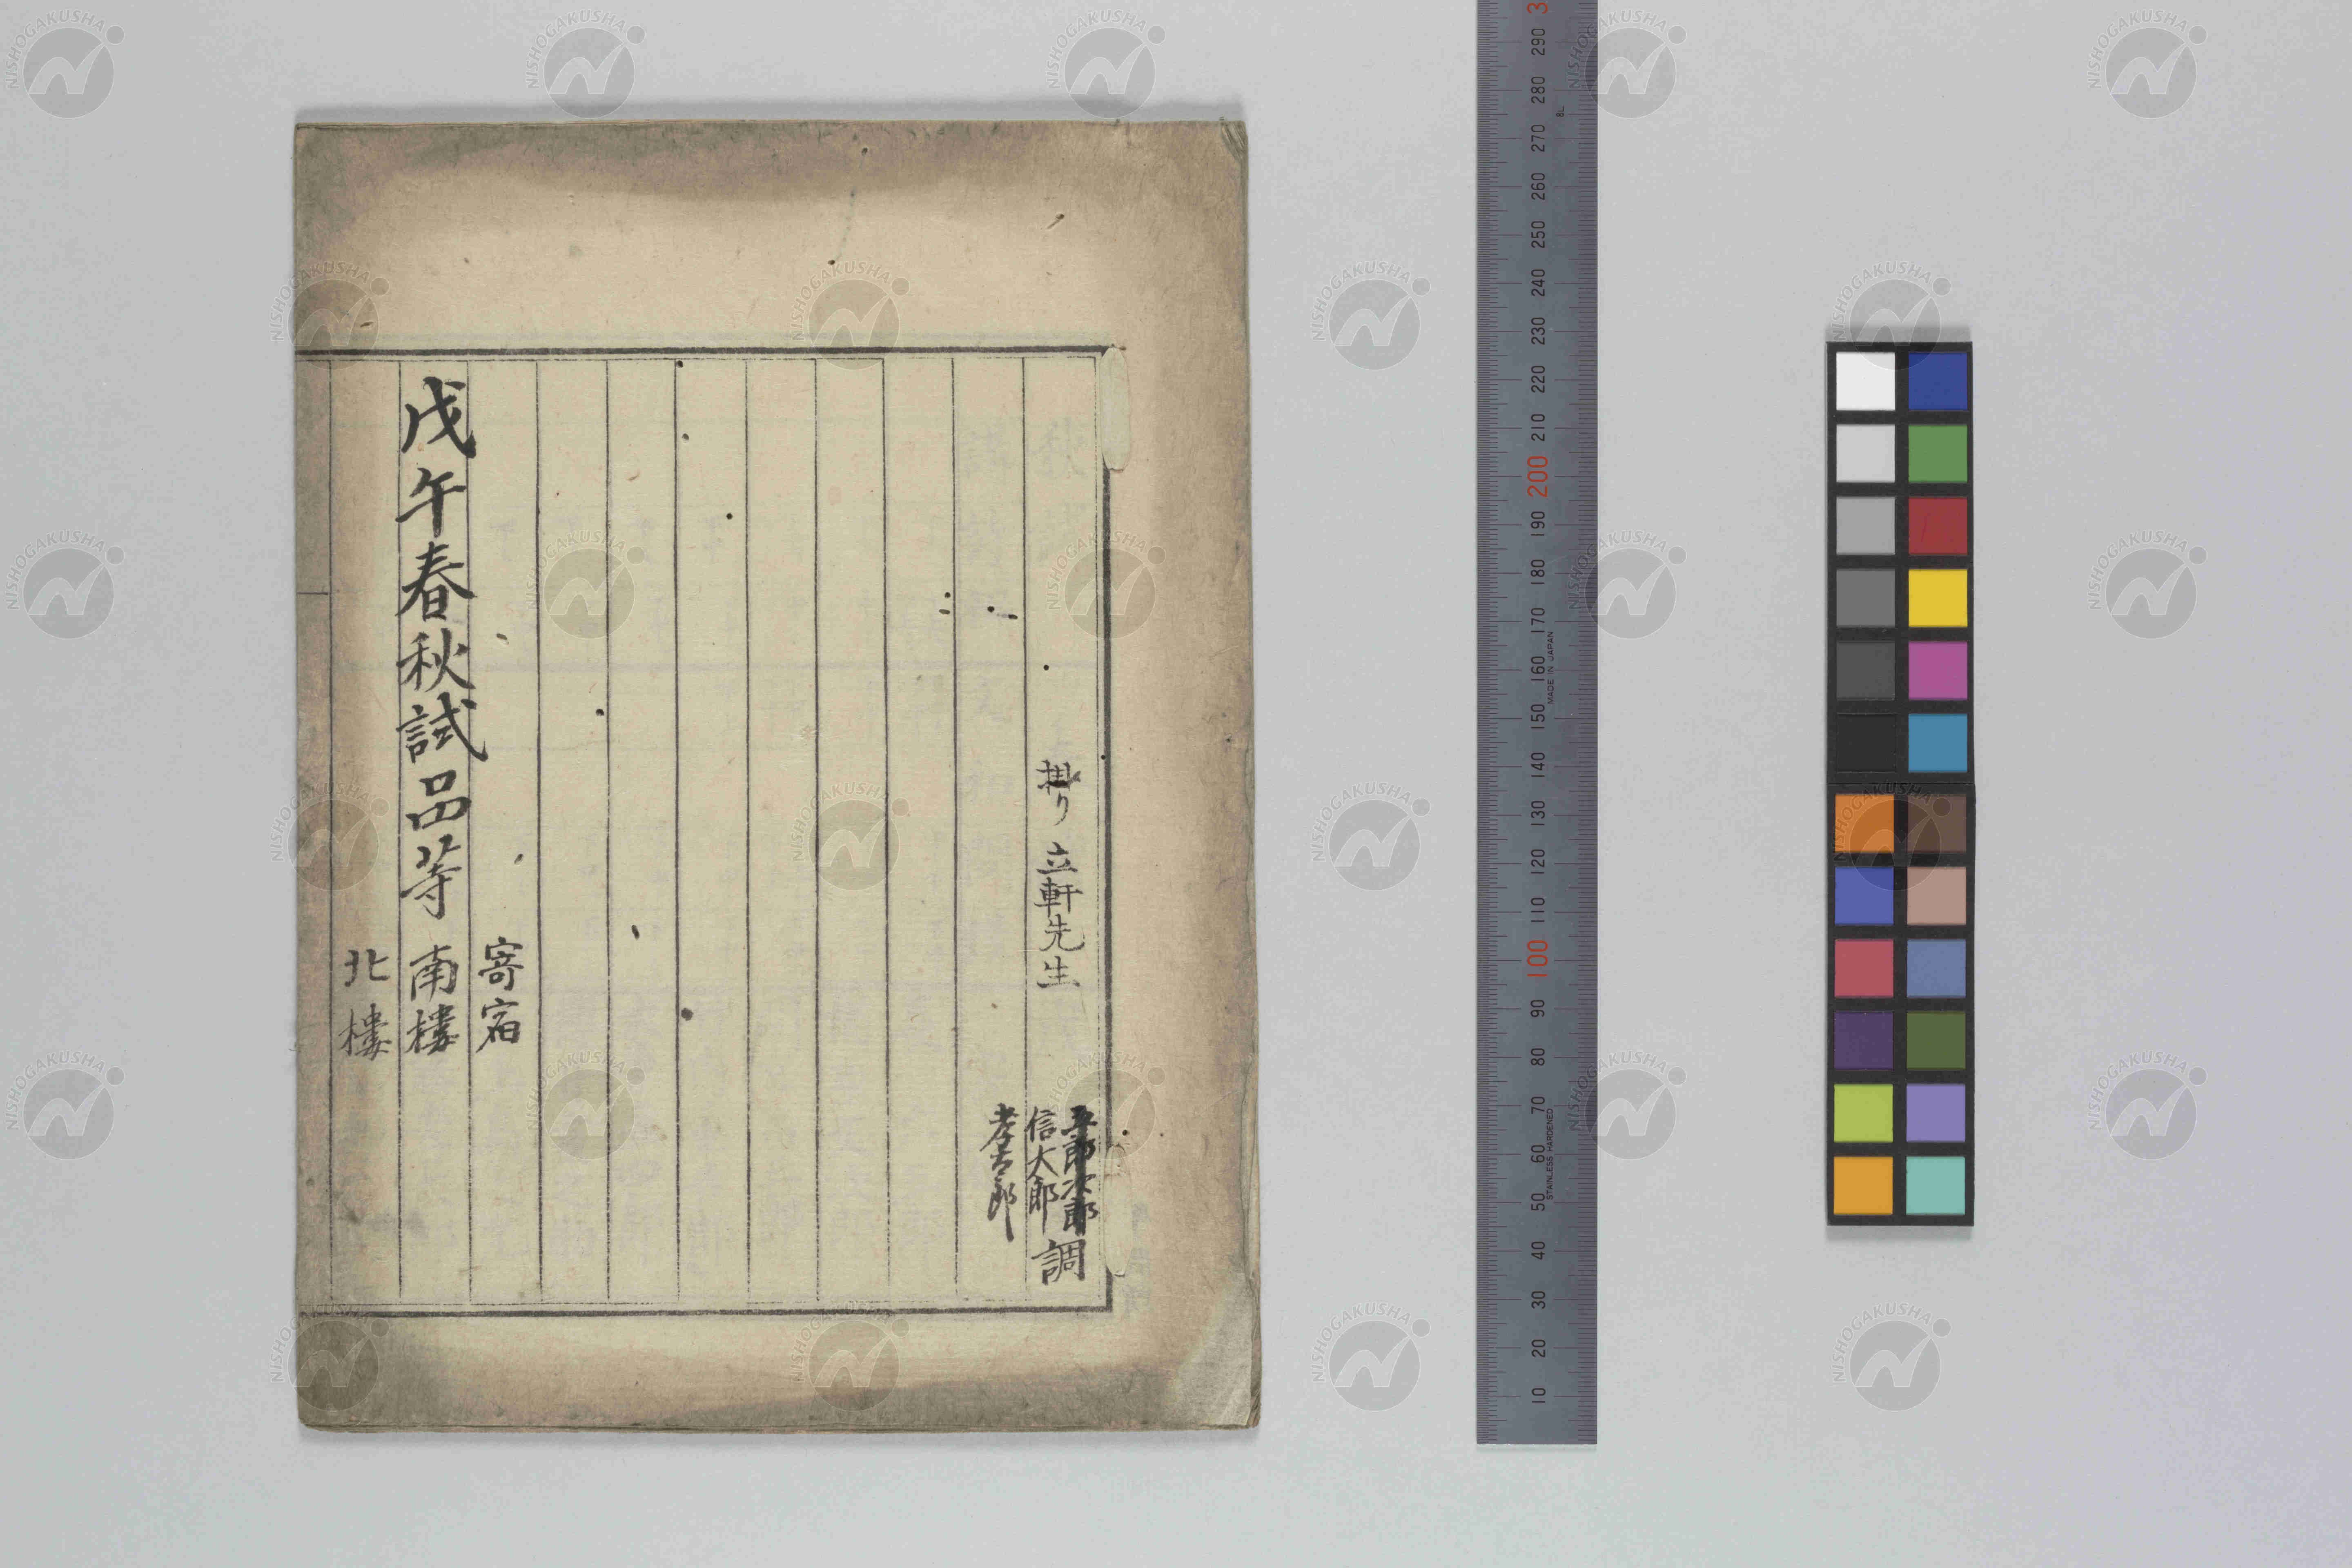 掛り 立軒先生
五郎次郎
信太郎 調
孝太郎
寄宿
戊午春秋試品等 南樓
北樓
NISHOGAKUSHA
3
290
280
270
260
250
240
230
220
210
200
190
180
170
160
150
140
130
120
110
100
90
80
70
60
50
40
30
20
10
MADE IN JAPAN
STAINLESS HARDENED